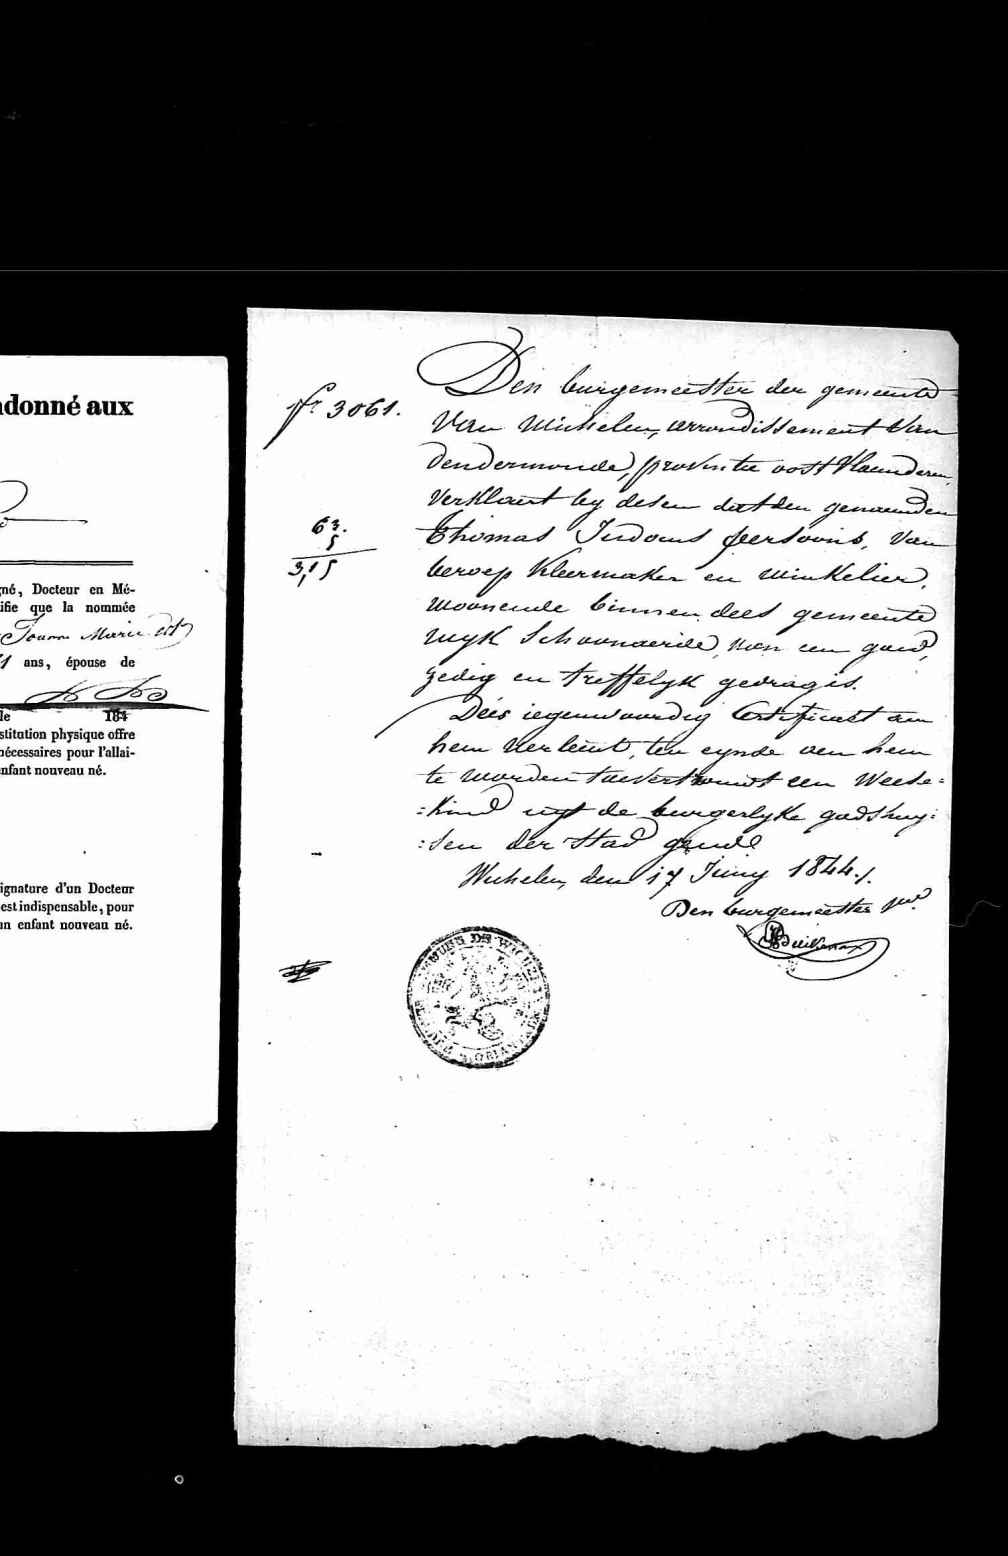 donné aux
gné, Docteur en Mé-
ifie que la nommée
Joanna Marie
ans, épouse de
de 184
stitution physique offre
nécessaires pour l'allai-
enfant nouveau né.
ignature d'un Docteur
est indispensable, pour
un enfant nouveau né.
Nr. 3061.
63.
5
3,15
Den burgemeester der gemeente
van Wichelen, arrondissement van
dendermonde, provintie oost Vlaenderen,
verklaert by desen dat den genaemden
Thomas Judocus Persoons, van
beroep kleermaker en winkelier,
woonende binnen dees gemeente
wyk Schoonaerde, van een goed,
zedig en treffelyk gedragis.
Dees iegenwoordig Certificaet aen
hem verleent, ten eynde aen hem
te worden toevertrouwt een Weese=
=kind uyt de burgerlyke godshuy=
=sen der stad gend
Wichelen, den 17 Juny 1844./.
Den burgemeester
COMMUNE DE WICHELEN
FLANDRE ORIENTALE